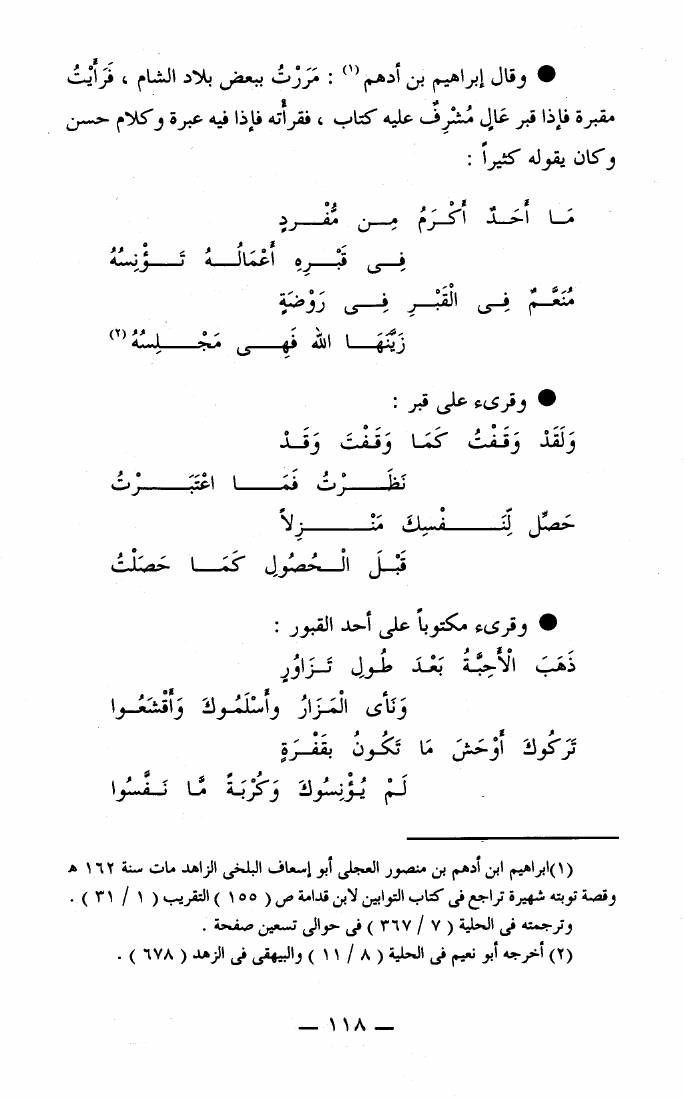 ● وقال إبراهيم بن أدهم (١) : مَرَرْتُ ببعض بلاد الشام ، فَرَأَيْتُ
مقبرة فإذا قبر عَالٍ مُشْرِفٌ عليه كتاب ، فقرأته فإذا فيه عبرة وكلام حسن
وكان يقوله كثيراً :
مَا أَحَدٌ أَكْرَمُ مِن مُّفْرَدٍ
فِى قَبْرِهِ أَعْمَالُهُ تَؤْنِسُهُ
مُنَعَّمٌ فِى الْقَبْرِ فِى رَوْضَةٍ
زَيَّنَهَا اللهُ فَهِى مَجْلِسُهُ (٢)
● وقرىء على قبر :
وَلَقَدْ وَقَفْتُ كَمَا وَقَفْتَ وَقَدْ
نَظَرْتُ فَمَا اعْتَبَرْتُ
حَصِّل لِّنَفْسِكَ مَنْزِلاً
قَبْلَ الْحُصُولِ كَمَا حَصَلْتُ
● وقرىء مكتوباً على أحد القبور :
ذَهَبَ الْأَحِبَّةُ بَعْدَ طُولِ تَزَاوُرٍ
وَنَأى الْمَزَارُ وأَسْلَمُوكَ وَأَقْشَعُوا
تَرَكُوكَ أَوْحَشَ مَا تَكُونُ بقَفْرَةٍ
لَمْ يُؤْنِسُوكَ وَكُرْبَةً مَّا نَفَّسُوا
(١)ابراهيم ابن أدهم بن منصور العجلى أبو إسعاف البلخى الزاهد مات سنة ١٦٢ هـ
وقصة توبته شهيرة تراجع فى كتاب التوابين لابن قدامة ص ( ١٥٥ ) التقريب ( ١ / ٣١ ) .
وترجمته فى الحلية ( ٧ / ٣٦٧ ) فى حوالى تسعين صفحة .
(٢) أخرجه أبو نعيم فى الحلية ( ٨ / ١١ ) والبيهقى فى الزهد ( ٦٧٨ ) .
— ١١٨ —